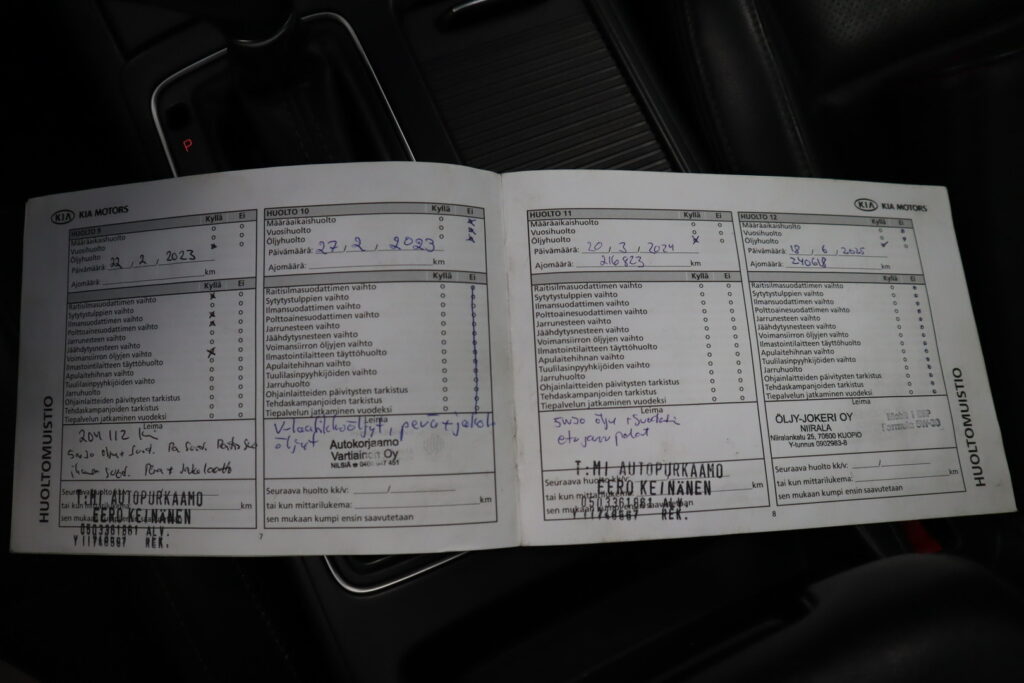 P
KIA KIA MOTORS
HUOLTO 9 Kyllä Ei
Määräaikaishuolto
Vuosihuolto
Öljyhuolto
Päivämäärä: 22, 2, 2023
Ajomäärä: km
Kyllä Ei
Raitisilmasuodattimen vaihto
Sytytystulppien vaihto
Ilmansuodattimen vaihto
Polttoainesuodattimen vaihto
Jarrunesteen vaihto
Jäähdytysnesteen vaihto
Voimansiirron öljyjen vaihto
Ilmastointilaitteen täyttöhuolto
Apulaitehihnan vaihto
Tuulilasinpyyhkijöiden vaihto
Jarruhuolto
Ohjainlaitteiden päivitysten tarkistus
Tehdaskampanjoiden tarkistus
Tiepalvelun jatkaminen vuodeksi
Leima
204 112 km
5w30 öljy + Suod.
Seuraava huolto kk/v:
tai kun mittarilukema: km
sen mukaan kumpi ensin saavutetaan
T:MI AUTOPURKAAMO
EERO KEINÄNEN
0503361861 ALV.
Y11748567 REK.
HUOLTOMUISTIO
HUOLTO 10 Kyllä Ei
Määräaikaishuolto
Vuosihuolto
Öljyhuolto
Päivämäärä: 27, 2, 2023
Ajomäärä: km
Kyllä Ei
Raitisilmasuodattimen vaihto
Sytytystulppien vaihto
Ilmansuodattimen vaihto
Polttoainesuodattimen vaihto
Jarrunesteen vaihto
Jäähdytysnesteen vaihto
Voimansiirron öljyjen vaihto
Ilmastointilaitteen täyttöhuolto
Apulaitehihnan vaihto
Tuulilasinpyyhkijöiden vaihto
Jarruhuolto
Ohjainlaitteiden päivitysten tarkistus
Tehdaskampanjoiden tarkistus
Tiepalvelun jatkaminen vuodeksi
Leima
V-laatikkoöljyt, perä + jakol
öljyt
Autokorjaamo
Vartiainen Oy
NILSIÄ
Seuraava huolto kk/v: /
tai kun mittarilukema: km
sen mukaan kumpi ensin saavutetaan
7
HUOLTO 11 Kyllä Ei
Määräaikaishuolto
Vuosihuolto
Öljyhuolto
Päivämäärä: 20, 3, 2024
Ajomäärä: 216823 km
Kyllä Ei
Raitisilmasuodattimen vaihto
Sytytystulppien vaihto
Ilmansuodattimen vaihto
Polttoainesuodattimen vaihto
Jarrunesteen vaihto
Jäähdytysnesteen vaihto
Voimansiirron öljyjen vaihto
Ilmastointilaitteen täyttöhuolto
Apulaitehihnan vaihto
Tuulilasinpyyhkijöiden vaihto
Jarruhuolto
Ohjainlaitteiden päivitysten tarkistus
Tehdaskampanjoiden tarkistus
Tiepalvelun jatkaminen vuodeksi
Leima
5w30 öljy + Suodatin
etu jarru palat
T:MI AUTOPURKAAMO
EERO KEINÄNEN
0503361861 ALV.
Y11748567 REK.
Seuraava huolto kk/v:
tai kun mittarilukema: km
sen mukaan kumpi ensin saavutetaan
KIA KIA MOTORS
HUOLTO 12 Kyllä Ei
Määräaikaishuolto
Vuosihuolto
Öljyhuolto
Päivämäärä: 18, 6, 2025
Ajomäärä: 240618 km
Kyllä Ei
Raitisilmasuodattimen vaihto
Sytytystulppien vaihto
Ilmansuodattimen vaihto
Polttoainesuodattimen vaihto
Jarrunesteen vaihto
Jäähdytysnesteen vaihto
Voimansiirron öljyjen vaihto
Ilmastointilaitteen täyttöhuolto
Apulaitehihnan vaihto
Tuulilasinpyyhkijöiden vaihto
Jarruhuolto
Ohjainlaitteiden päivitysten tarkistus
Tehdaskampanjoiden tarkistus
Tiepalvelun jatkaminen vuodeksi
Leima
ÖLJY-JOKERI OY
NIIRALA
Niiralankatu 25, 70600 KUOPIO
Y-tunnus 0902983-8
Mobil 1 ESP
Formula 5W-30
Seuraava huolto kk/v: /
tai kun mittarilukema: km
sen mukaan kumpi ensin saavutetaan
8
HUOLTOMUISTIO